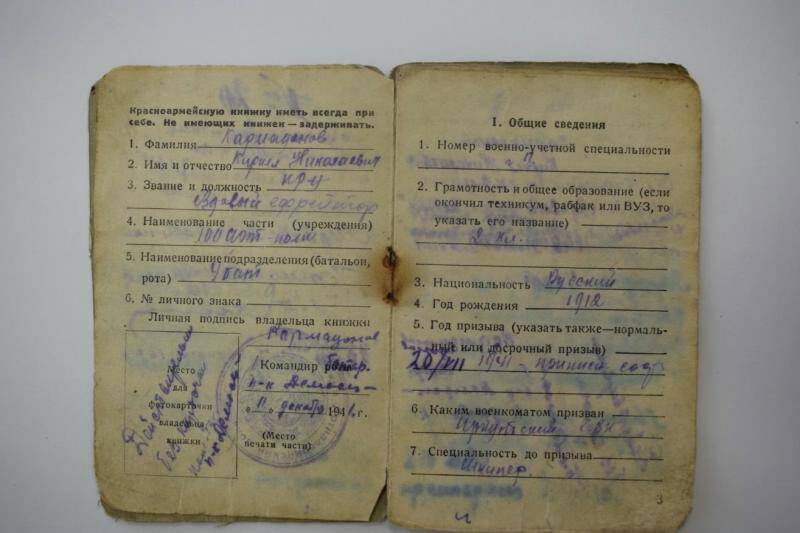 Красноармейскую книжку иметь всегда при
себе. Не имеющих книжек — задерживать.
1. Фамилия Кармадонов
2. Имя и отчество Кирил Николаевич
3. Звание и должность
ефрейтор
4. Наименование части (учреждения)
100 арт-полк
5. Наименование подразделения (батальон,
рота)
6. № личного знака
Личная подпись владельца книжки
Кармадонов
Место
для
фотокарточки
владельца
книжки
Действительна
без карточки
Командир
11 декабря 1941 г.
(Место
печати части)
I. Общие сведения
1. Номер военно-учетной специальности
2. Грамотность и общее образование (если
окончил техникум, рабфак или ВУЗ, то
указать его название)
2 кл.
3. Национальность Русский
4. Год рождения 1912
5. Год призыва (указать также—нормаль-
ный или досрочный призыв)
20/VII 1941
6. Каким военкоматом призван
7. Специальность до призыва
Шкипер.
3